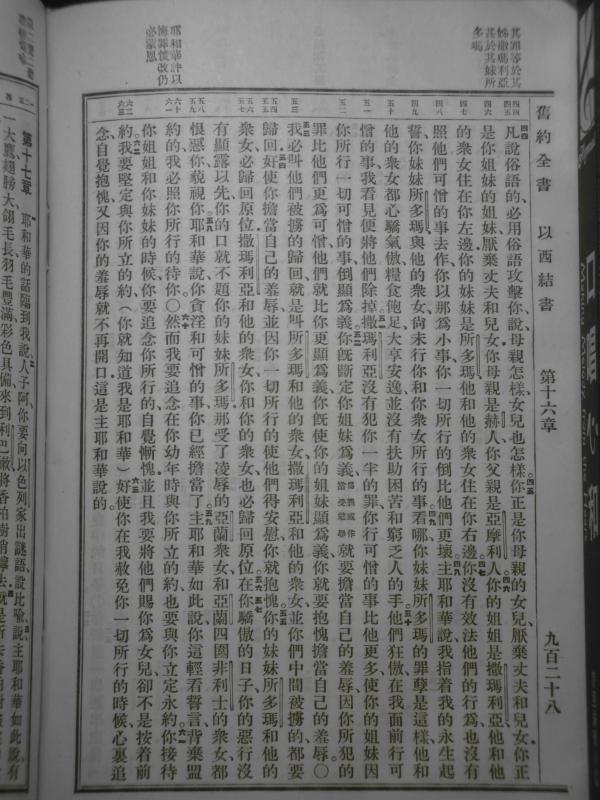 其罪等於其姊撒瑪利亞其於其妹所多瑪
耶和華許以悔罪悛改仍必蒙恩
舊約全書 以西結書 第十六章 九百二十八
凡說俗語的必用俗語攻擊你說母親怎樣女兒也怎樣你正是你母親的女兒厭棄丈夫和兒女你正
是你姐妹的姐妹厭棄丈夫和兒女你母親是赫人你父親是亞摩利人你的姐姐是撒瑪利亞他和他
的衆女住在你左邊你的妹妹是所多瑪他和他的衆女住在你右邊你沒有效法他們的行爲也沒有
照他們可憎的事去作你以那爲小事你一切所行的倒比他們更壞主耶和華說我指着我的永生起
誓你妹妹所多瑪與他的衆女尙未行你和你衆女所行的事看哪你妹妹所多瑪的罪孽是這樣他和
他的衆女都心驕氣傲糧食飽足大享安逸並沒有扶助困苦和窮乏人的手他們狂傲在我面前行可
憎的事我看見便將他們除掉撒瑪利亞沒有犯你一半的罪你行可憎的事比他更多使你的姐妹因
你所行一切可憎的事倒顯爲義你旣斷定你姐妹爲義就要擔當自己的羞辱因你所犯的
罪比他們更爲可憎他們就比你更顯爲義你旣使你的姐妹顯爲義你就要抱愧擔當自己的羞辱○
我必叫他們被擄的歸回就是叫所多瑪和他的衆女撒瑪利亞和他的衆女並你們中間被擄的都要
歸回好使你擔當自己的羞辱並因你一切所行的使他們得安慰你就抱愧你的妹妹所多瑪和他的
衆女必歸回原位撒瑪利亞和他的衆女你和你的衆女也必歸回原位在你驕傲的日子你的惡行沒
有顯露以先你的口就不題你的妹妹所多瑪那受了凌辱的亞蘭衆女和亞蘭四圍非利士的衆女都
恨惡你藐視你耶和華說你貪淫和可憎的事你已經擔當了主耶和華如此說你這輕看誓言背棄盟
約的我必照你所行的待你○然而我要追念在你幼年時與你所立的約也要與你立定永約你接待
你姐姐和你妹妹的時候你要追念你所行的自覺慚愧並且我要將他們賜你爲女兒卻不是按着前
約我要堅定與你所立的約(你就知道我是耶和華)好使你在我赦免你一切所行的時候心裏追
念自覺抱愧又因你的羞辱就不再開口這是主耶和華說的
第十七章 耶和華的話臨到我說人子阿你要向以色列家出謎語設比喩說主耶和華如此說有
一大鷹翅膀大翎毛長羽毛豐滿彩色具備來到利巴嫩將香柏樹梢擰去
口唱心和